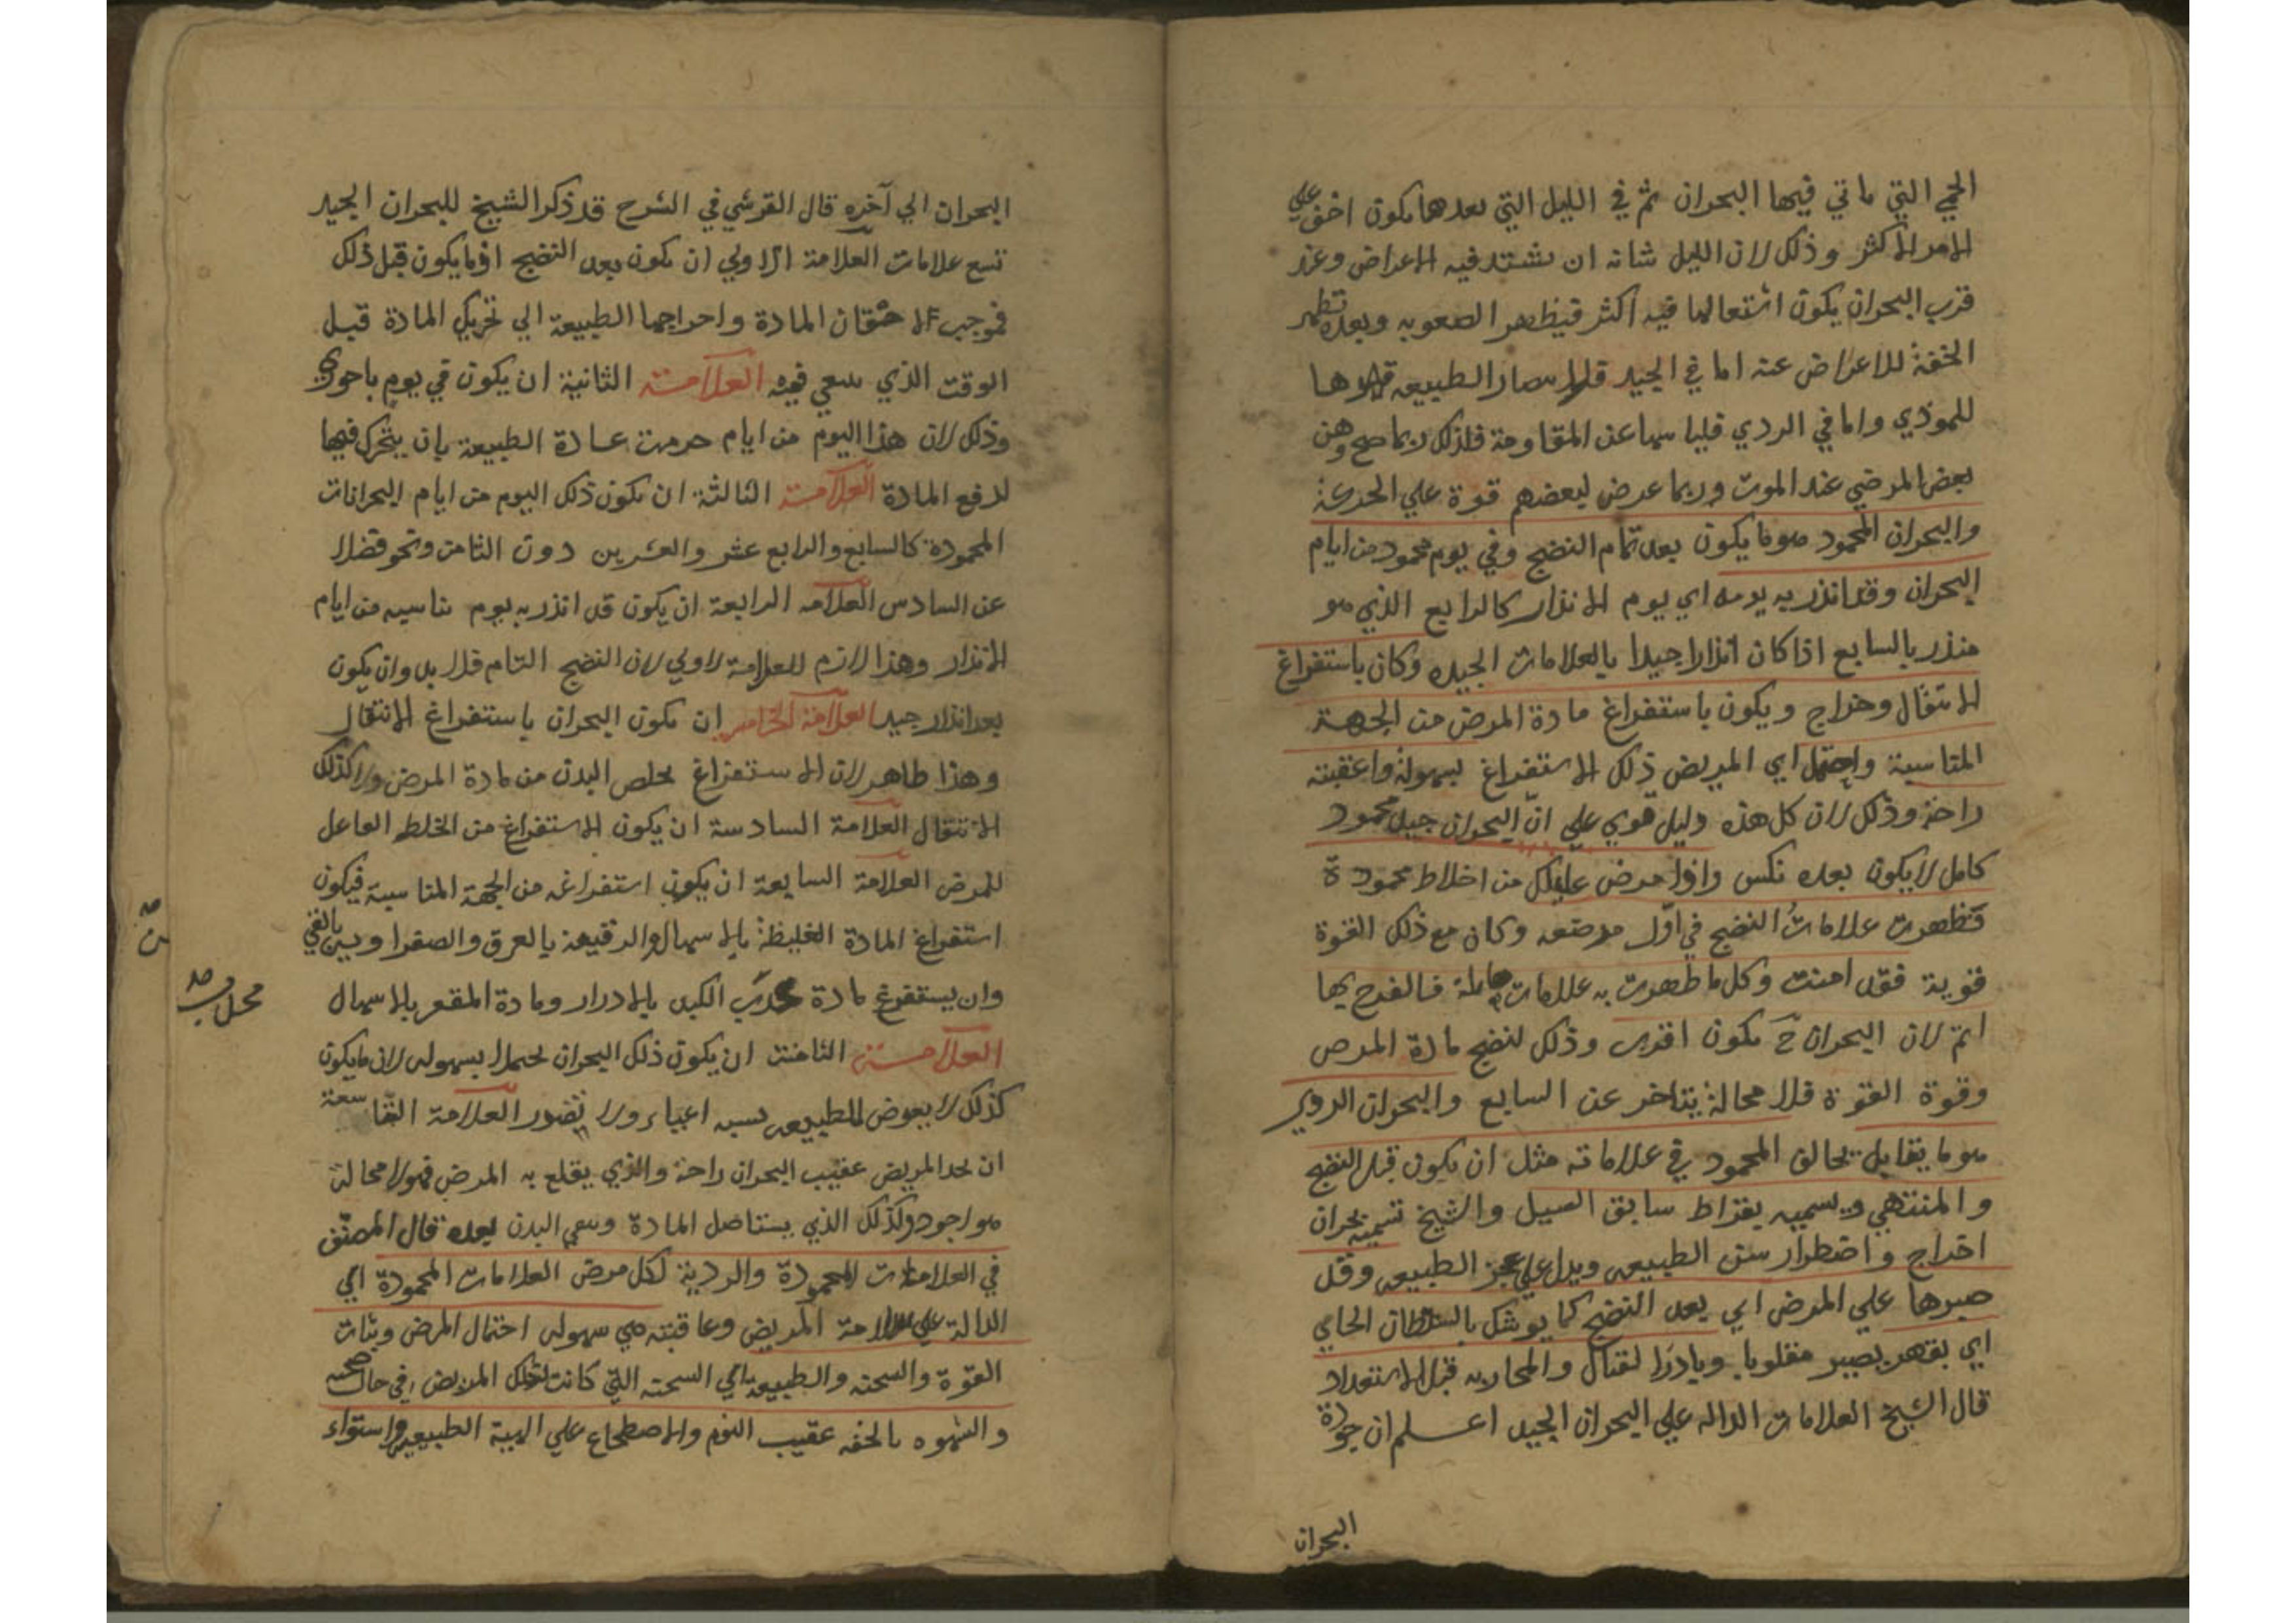 الحمي التي ياتي فيها البحران ثم في الليل التي بعدها يكون اخف علي
الامر الاكثر وذلك لان الليل شانه ان يشتد فيه الاعراض وعند
قرب البحران يكون اشتعالها فيه اكثر فيظهر الصعوبه وبعده تظهر
الخفة للاعراض عنه اما في الجيد الطبيعه
للموذي واما في الردي عن المقاومة فلذلك ربما صح وهن
بعض المرضي عند الموت وربما عرض لبعضهم قوة علي الحركة
والبحران المحمود هو ما يكون بعد تمام النضج وفي يوم محمود من ايام
البحران وقد انذر به يومه اي يوم الانذار كالرابع الذي هو
منذر بالسابع اذا كان انذارا جيدا بالعلامات الجيده وكان باستفراغ
لا انتقال وخراج ويكون باستفراغ مادة المرض من الجهة
المناسبة واحتمل اي المريض ذلك الاستفراغ بسهولة واعقبته
راحة وذلك لان كل هذه دليل قوي علي ان البحران جيد محمود
كامل لا يكون بعده نكس واذا مرض عليل من اخلاط محمودة
فظهرت علامات النضج في اول مرضه وكان مع ذلك القوة
قوية فقد امنت وكل ما ظهرت به علامات هايلة فالفرح بها
اتم لان البحران ح يكون اقرب وذلك لنضج مادة المرض
وقوة القوة فلا محالة يتاخر عن السابع والبحران الردي
هو ما يقابل يخالف المحمود في علاماته مثل ان يكون قبل النضج
والمنتهي ويسميه بقراط سابق السيل والشيخ تسميه بحران
اخراج واضطرار من الطبيعه ويدل علي عجز الطبيعه وقل
صبرها علي المرض الي بعد النضج كما يوشك بالسلطان الحامي
اي يقهر يصير مغلوبا وبادر القتال والمحاربه قبل الاستعداد
قال الشيخ العلامات الداله علي البحران الجيد اعلم ان جودة
البحران
البحران الي آخره قال القرشي في الشرح قد ذكر الشيخ للبحران الجيد
تسع علامات العلامة الاولي ان يكون بعد النضج اذ ما يكون قبل ذلك
فموجبه الاحتقان المادة واحراجها الطبيعة الي تحريك المادة قبل
الوقت الذي ينبغي فيه العلامة الثانية ان يكون في يوم باحوري
وذلك لان هذا اليوم من ايام جرت عادة الطبيعة بان يتحرك فيها
لدفع المادة العلامة الثالثة ان يكون ذلك اليوم من ايام البحرانات
المحمودة كالسابع والرابع عشر والعشرين دون الثامن ونحو فضلا
عن السادس العلامه الرابعة ان يكون قد انذر به يوم يناسبه من ايام
الانذار وهذا لازم للعلامة لاولي لان النضج التام فلا بد وان يكون
بعد انذار جيد العلامة الخامسه ان يكون البحران باستفراغ لا انتقال
وهذا ظاهر لان الاستفراغ يخلص البدن من مادة المرض ولا كذلك
الانتقال العلامة السادسة ان يكون الاستفراغ من الخلط الفاعل
للمرض العلامة السابعة ان يكون استفراغه من الجهة المناسبة فيكون
استفراغ المادة الغليظة بالاسهال والرقيقة بالعرق والصفراويين بالقي
وان يستفرغ مادة محدب الكبد بالادرار ومادة المقعر بالاسهال
محدب
العلامة الثامنة ان يكون ذلك البحران بسهوله لان ما يكون
كذلك لا يعوض للطبيعه بسبه اعياء ولا تضور العلامة التاسعة
ان يجد المريض عقيب البحران راحة والذي يقلع به المرض فهو لا محالة
هو اجود وكذلك الذي يستاصل المادة وينقي البدن بعده قال المصنف
في العلامات المحمودة والردية لكل مرض العلامات المحمودة اي
الدالة علي سلامة المريض وعاقبته هي سهوله احتمال المرض وثبات
القوة والسحنه والطبيعة اي السحنه التي كانت لذلك المريض في حال صحته
والشهوه بالخفه عقيب النوم والاضطجاع علي الهيئة الطبيعيه واستواء